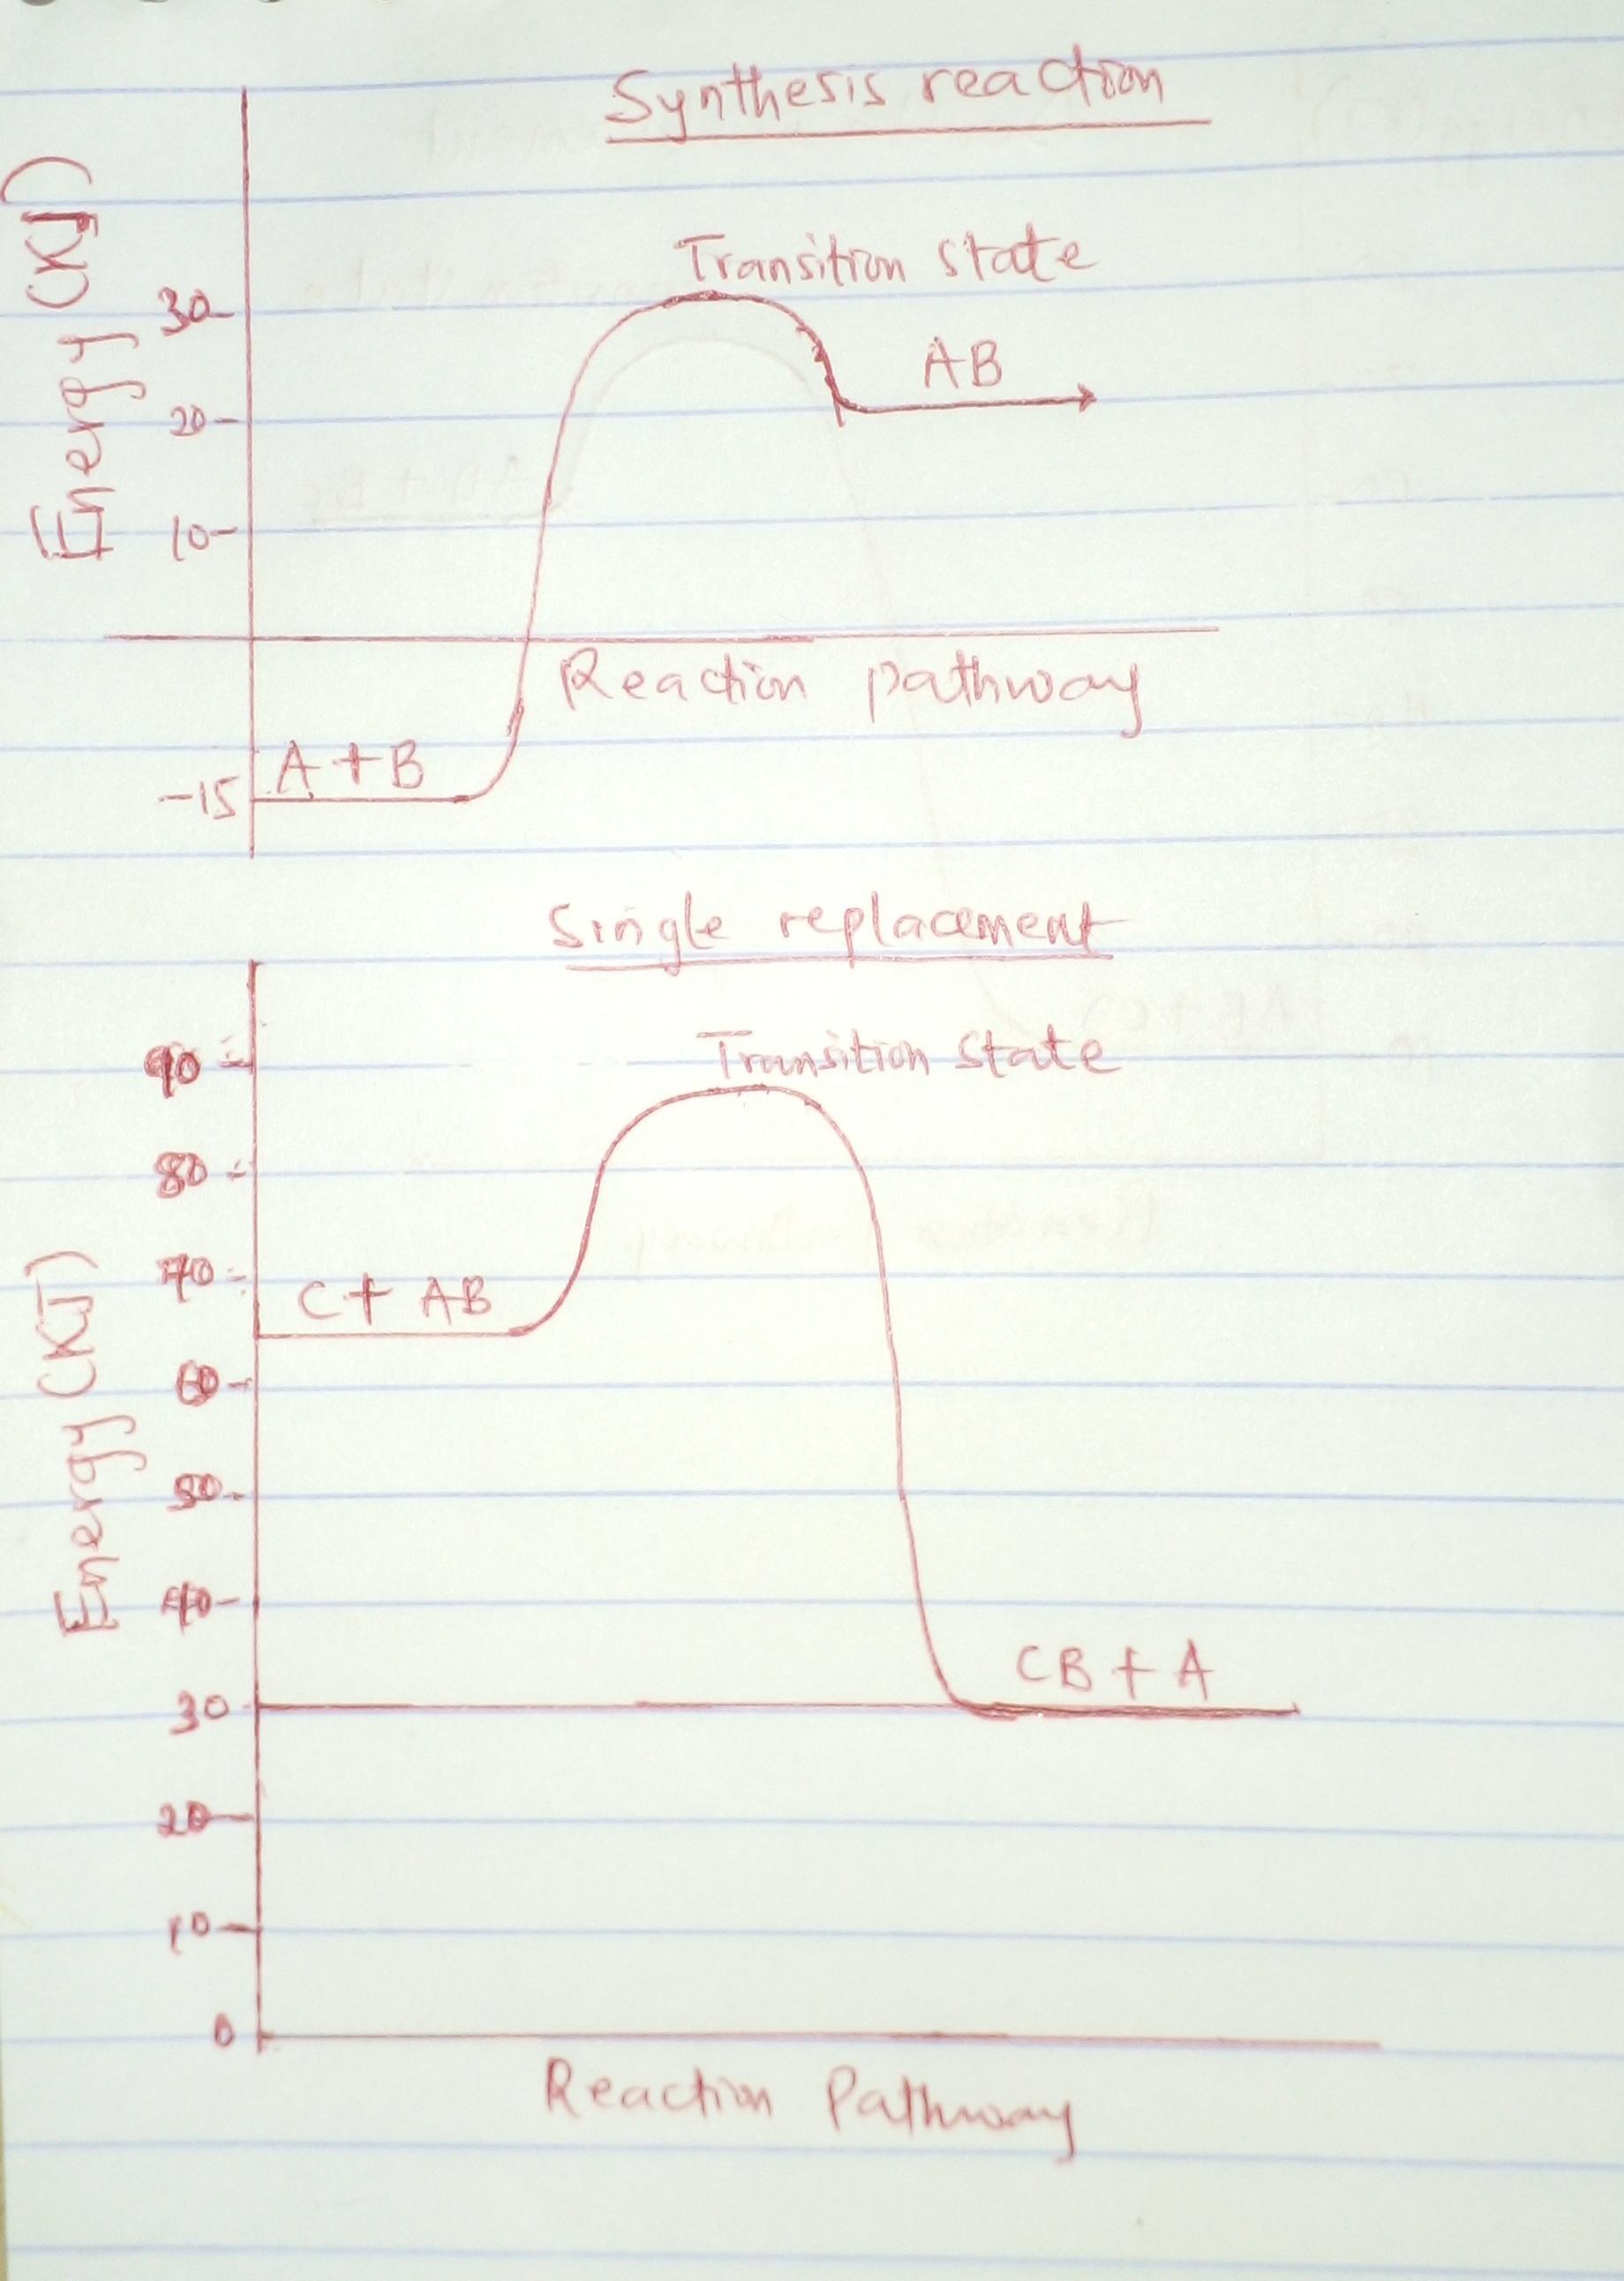 Synthesis reaction
Energy (KJ)
Transition state
30
AB
20
10
Reaction pathway
A + B
-15
Single replacement
Energy (KJ)
Transition state
90
80
70
C + AB
60
50
40
CB + A
30
20
10
0
Reaction Pathway